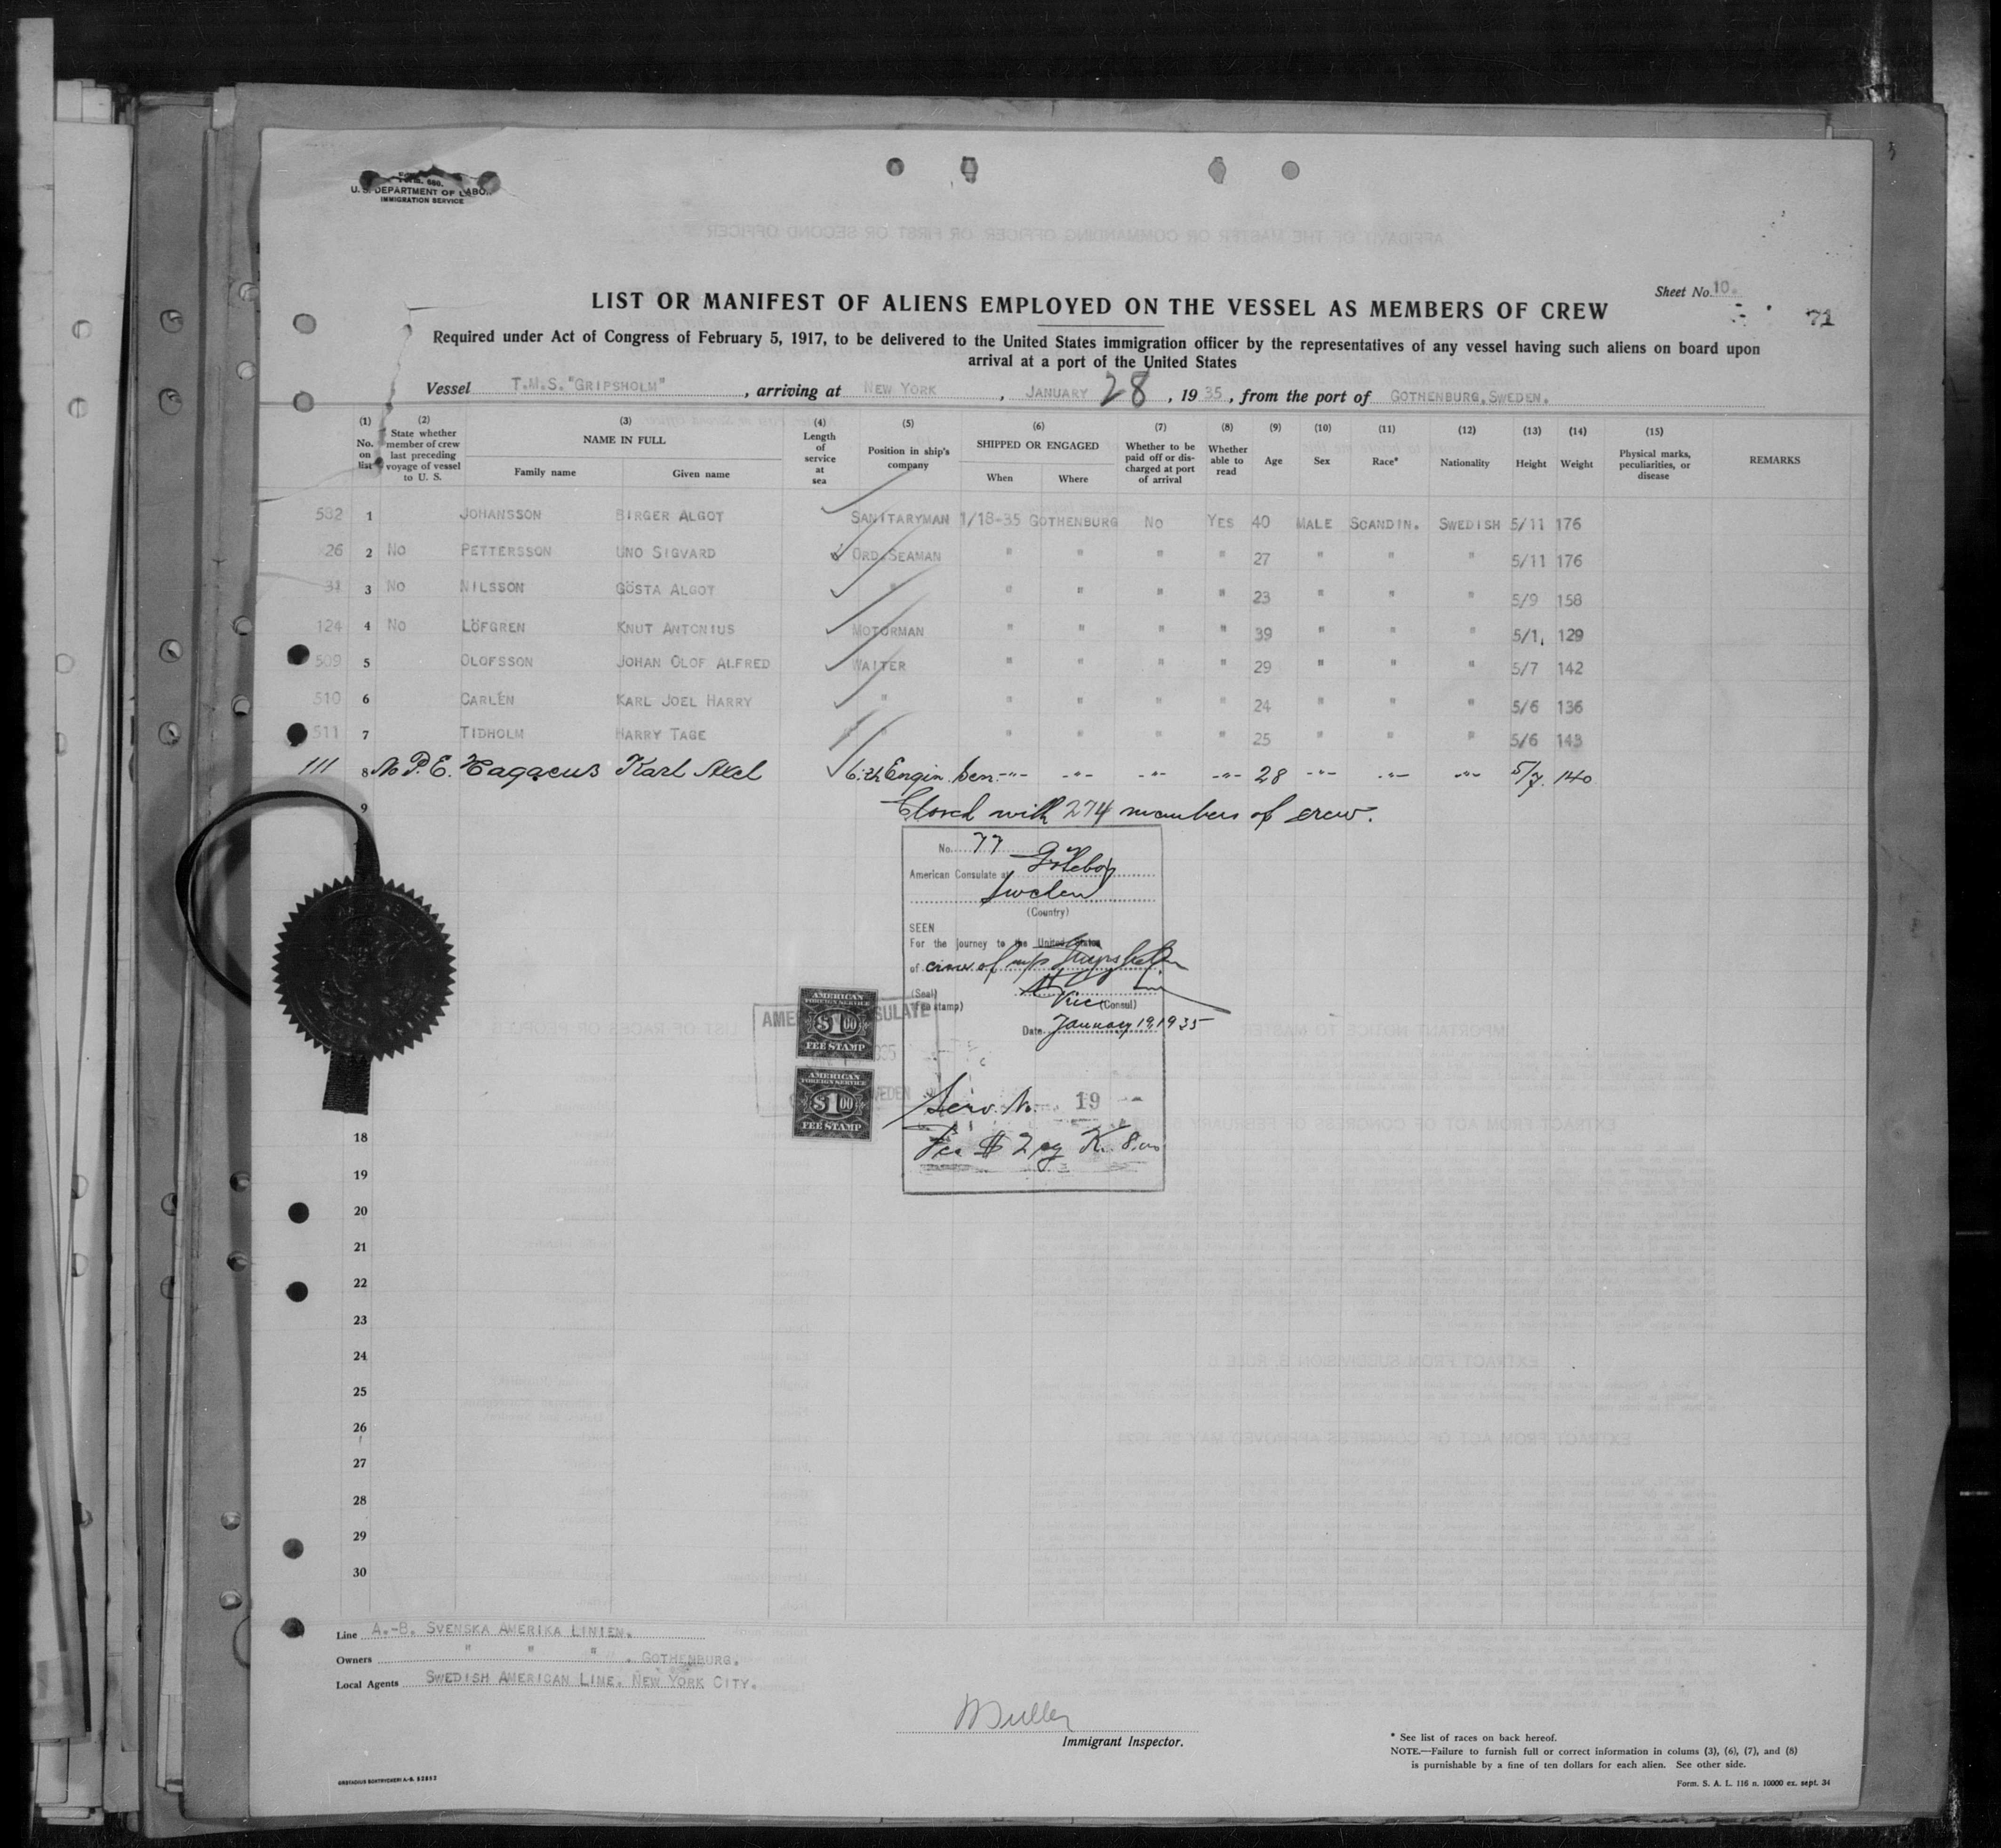 U. S. DEPARTMENT OF LABOR
IMMIGRATION SERVICE
Sheet No. 10.
71
LIST OR MANIFEST OF ALIENS EMPLOYED ON THE VESSEL AS MEMBERS OF CREW
Required under Act of Congress of February 5, 1917, to be delivered to the United States immigration officer by the representatives of any vessel having such aliens on board upon
arrival at a port of the United States
Vessel T.M.S. "GRIPSHOLM", arriving at NEW YORK, JANUARY 28, 1935, from the port of GOTHENBURG, SWEDEN.
(1) No. on list (2) State whether member of crew last preceding voyage of vessel to U. S. (3) NAME IN FULL Family name Given name (4) Length of service at sea (5) Position in ship's company (6) SHIPPED OR ENGAGED When Where (7) Whether to be paid off or discharged at port of arrival (8) Whether able to read (9) Age (10) Sex (11) Race* (12) Nationality (13) Height (14) Weight (15) Physical marks, peculiarities, or disease REMARKS
582 1 JOHANSSON BIRGER ALGOT SANITARYMAN 1/18-35 GOTHENBURG NO YES 40 MALE SCANDIN. SWEDISH 5/11 176
26 2 NO PETTERSSON UNO SIGVARD ORD.SEAMAN " " " " 27 " " " 5/11 176
31 3 NO NILSSON GÖSTA ALGOT " " " " " 23 " " " 5/9 158
124 4 NO LÖFGREN KNUT ANTONIUS MOTORMAN " " " " 39 " " " 5/1, 129
509 5 OLOFSSON JOHAN OLOF ALFRED WAITER " " " " 29 " " " 5/7 142
510 6 CARLÉN KARL JOEL HARRY " " " " " 24 " " " 5/6 136
511 7 TIDHOLM HARRY TAGE " " " " " 25 " " " 5/6 143
111 8 No P.E. Karl Axel 6:th Engin. -"- -"- -"- -"- 28 -"- -"- -"- 5/7. 140
9 Closed with 274 members of crew.
No. 77
American Consulate at Göteborg
Sweden
(Country)
SEEN
For the journey to the United States
of crew of m/s Gripsholm
(Seal)
(Fee stamp)
Vice (Consul)
Date January 19, 1935
AMERICAN CONSULATE
SWEDEN
AMERICAN
FOREIGN SERVICE
$1.00
FEE STAMP
AMERICAN
FOREIGN SERVICE
$1.00
FEE STAMP
Serv. No. 19
Fee $ 2 eq Kr. 8.00
18
19
20
21
22
23
24
25
26
27
28
29
30
Line A.-B. SVENSKA AMERIKA LINIEN.
Owners " " " . GOTHENBURG.
Local Agents SWEDISH AMERICAN LINE. NEW YORK CITY.
Muller
Immigrant Inspector.
* See list of races on back hereof.
NOTE.—Failure to furnish full or correct information in colums (3), (6), (7), and (8)
is punishable by a fine of ten dollars for each alien. See other side.
Form. S. A. L. 116 n. 10000 ex. sept. 34